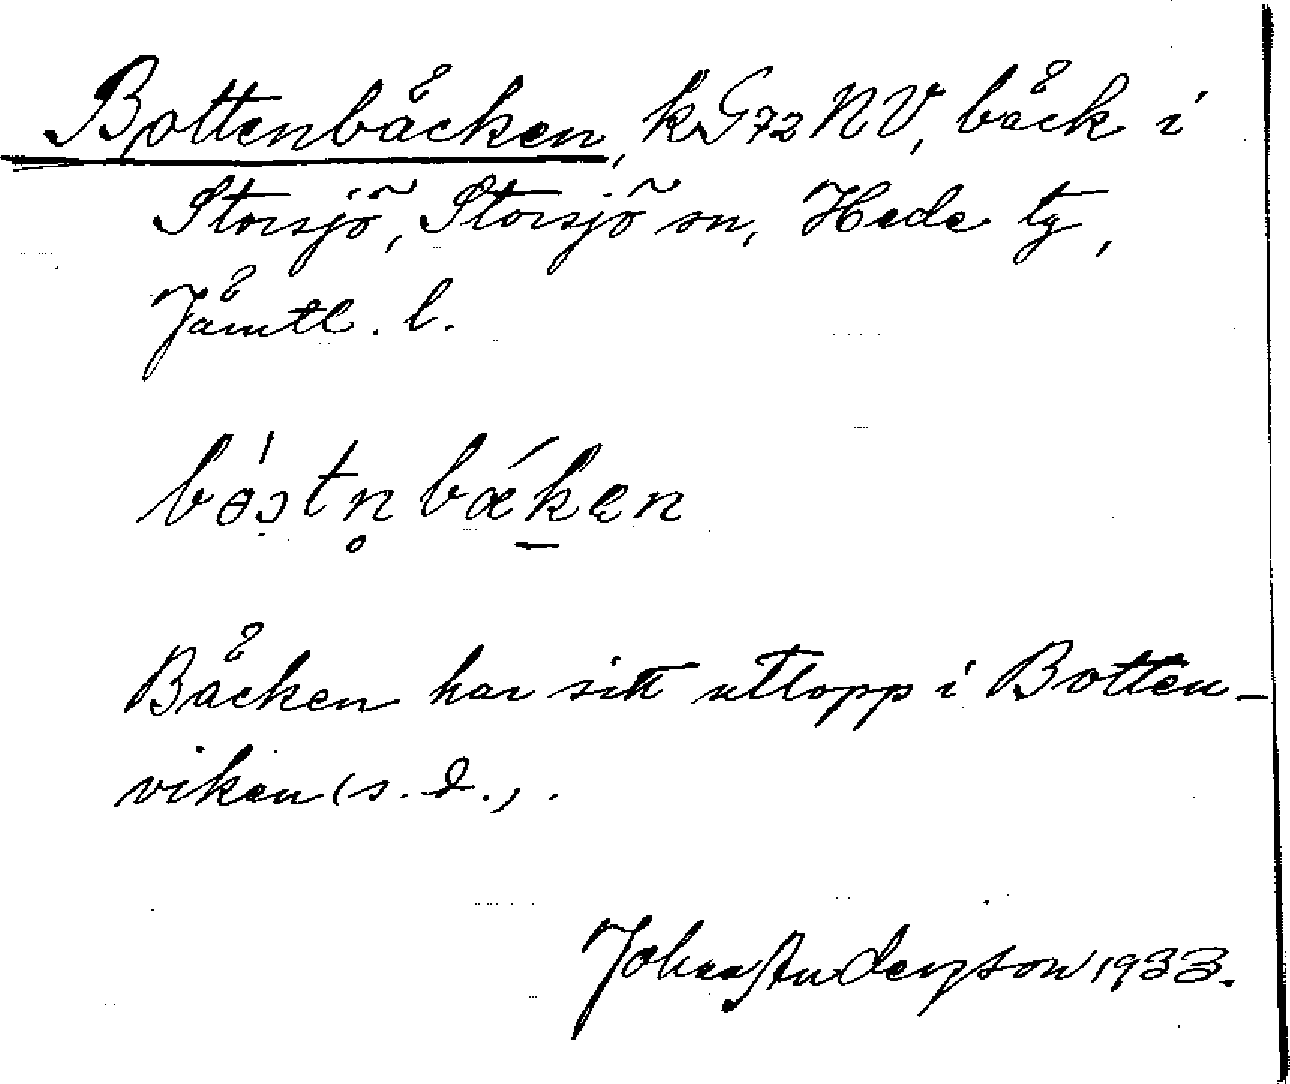 Bottenbäcken, kG72NV, bäck i
Storsjö, Storsjö sn, Hede tg,
Jämtl. l.
Bäcken har sitt utlopp i Botten-
viken (s. d.).
Johan Anderson 1933.